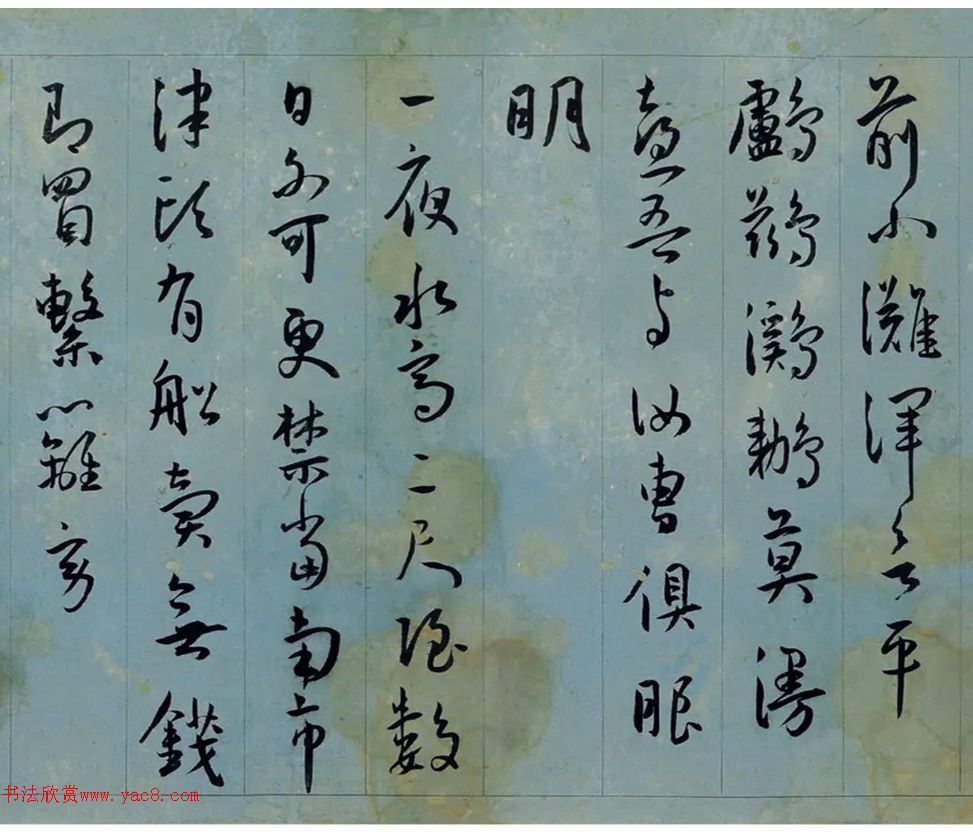 前小灘渾欲平
鸕鷀鸂鶒莫漫
喜吾与汝曹俱眼
明
一夜水高二尺強數
日不可更禁當南市
津頭有船賣無錢
即買繫籬旁
书法欣赏www.yac8.com